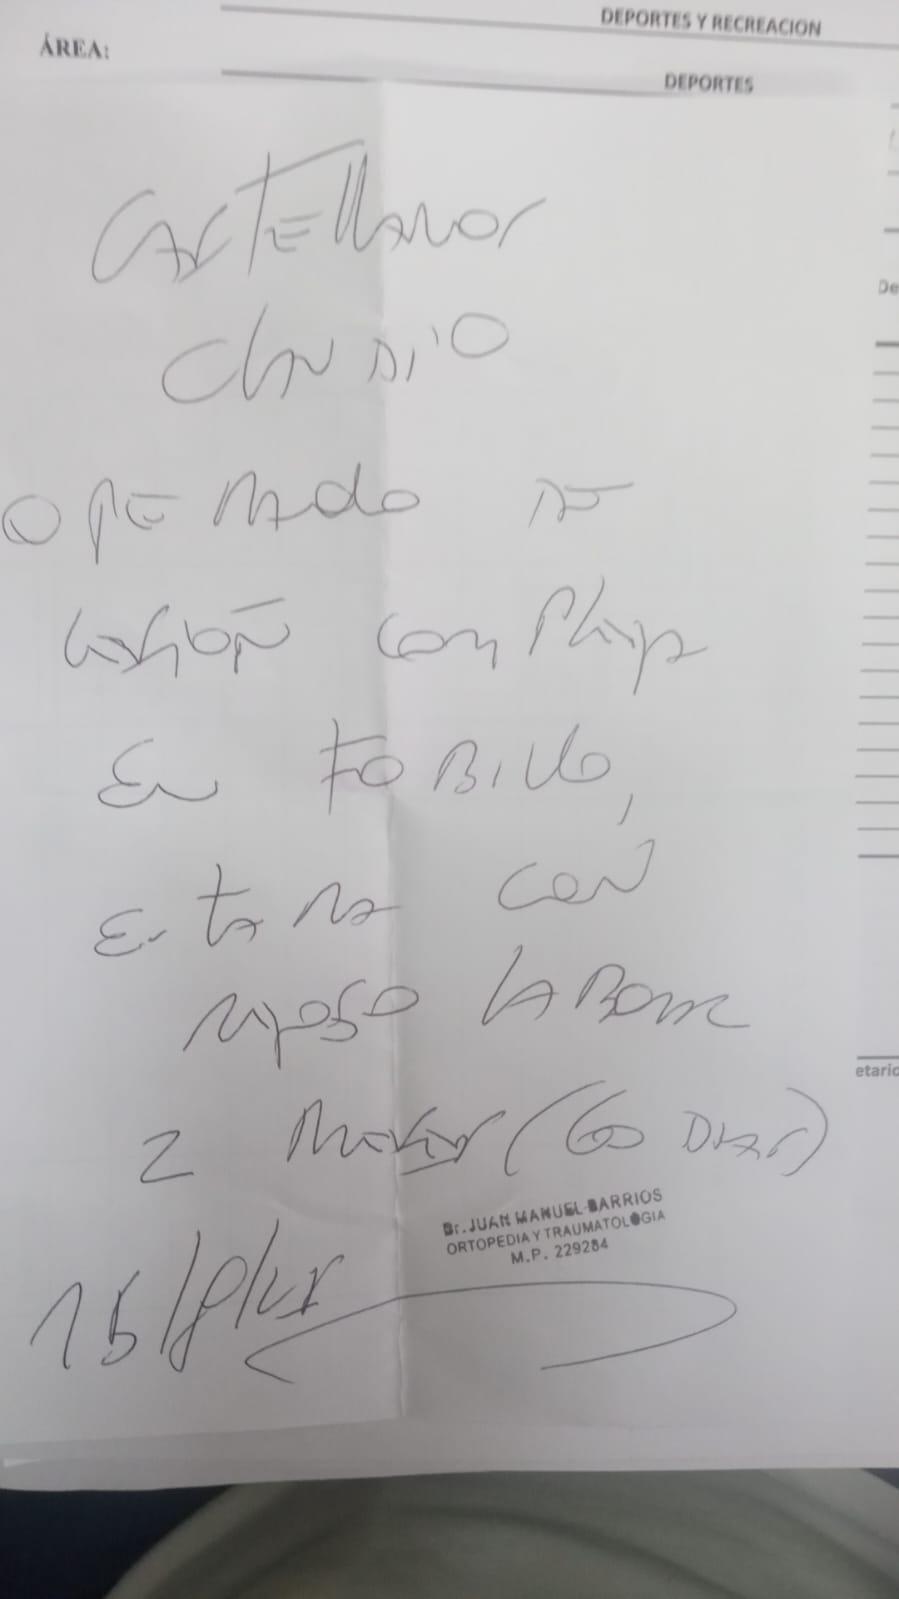 DEPORTES Y RECREACION
ÁREA:
DEPORTES
De
CASTELLANOS
CLAUDIO
OPERADO DE
LESIÓN CON PLACA
EN TOBILLO,
ESTARA CON
REPOSO LABORAL
2 MESES (60 DIAS)
etario
Dr. JUAN MANUEL BARRIOS
ORTOPEDIA Y TRAUMATOLOGIA
M.P. 229284